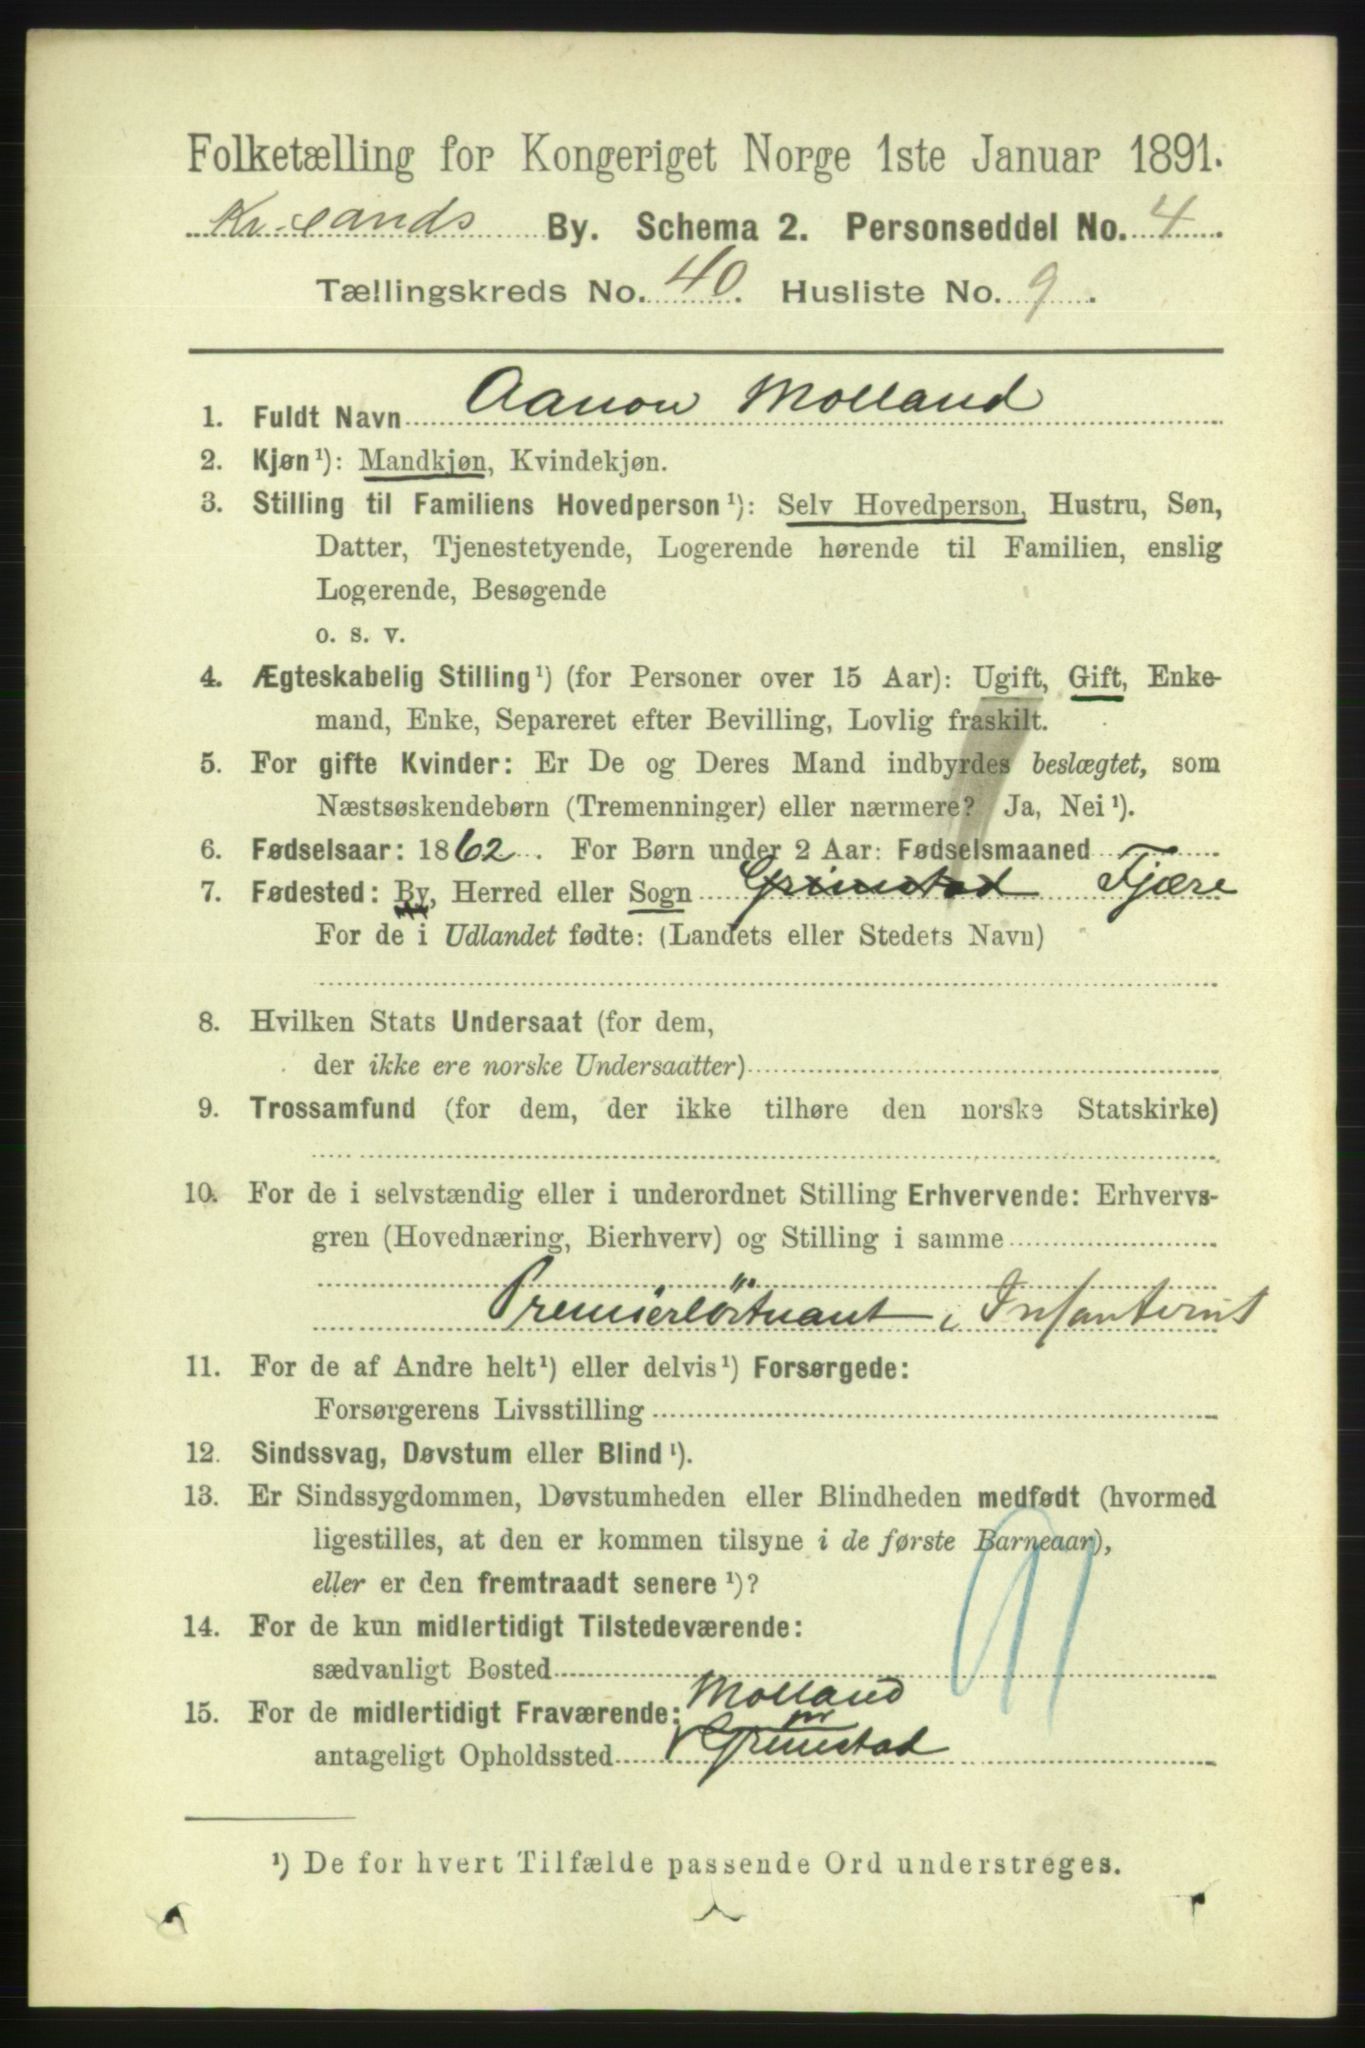 Folketælling for Kongeriget Norge 1ste Januar 1891.
Kr.sands By. Schema 2. Personseddel No. 4
Tællingskreds No. 40. Husliste No. 9.
1. Fuldt Navn Aanon Molland
2. Kjøn¹): Mandkjøn, Kvindekjøn.
3. Stilling til Familiens Hovedperson¹): Selv Hovedperson, Hustru, Søn,
Datter, Tjenestetyende, Logerende hørende til Familien, enslig
Logerende, Besøgende
o. s. v.
4. Ægteskabelig Stilling¹) (for Personer over 15 Aar): Ugift, Gift, Enke-
mand, Enke, Separeret efter Bevilling, Lovlig fraskilt.
5. For gifte Kvinder: Er De og Deres Mand indbyrdes beslægtet, som
Næstsøskendebørn (Tremenninger) eller nærmere? Ja, Nei¹).
6. Fødselsaar: 1862. For Børn under 2 Aar: Fødselsmaaned
7. Fødested: By, Herred eller Sogn Grimstad Fjære
For de i Udlandet fødte: (Landets eller Stedets Navn)
8. Hvilken Stats Undersaat (for dem,
der ikke ere norske Undersaatter)
9. Trossamfund (for dem, der ikke tilhøre den norske Statskirke)
10. For de i selvstændig eller i underordnet Stilling Erhvervende: Erhvervs-
gren (Hovednæring, Bierhverv) og Stilling i samme
Premierlöitnant i Infanteriet
11. For de af Andre helt¹) eller delvis¹) Forsørgede:
Forsørgerens Livsstilling
12. Sindssvag, Døvstum eller Blind¹).
13. Er Sindssygdommen, Døvstumheden eller Blindheden medfødt (hvormed
ligestilles, at den er kommen tilsyne i de første Barneaar),
eller er den fremtraadt senere¹)?
14. For de kun midlertidigt Tilstedeværende:
sædvanligt Bosted
15. For de midlertidigt Fraværende: Molland
antageligt Opholdssted pr Grimstad
¹) De for hvert Tilfælde passende Ord understreges.